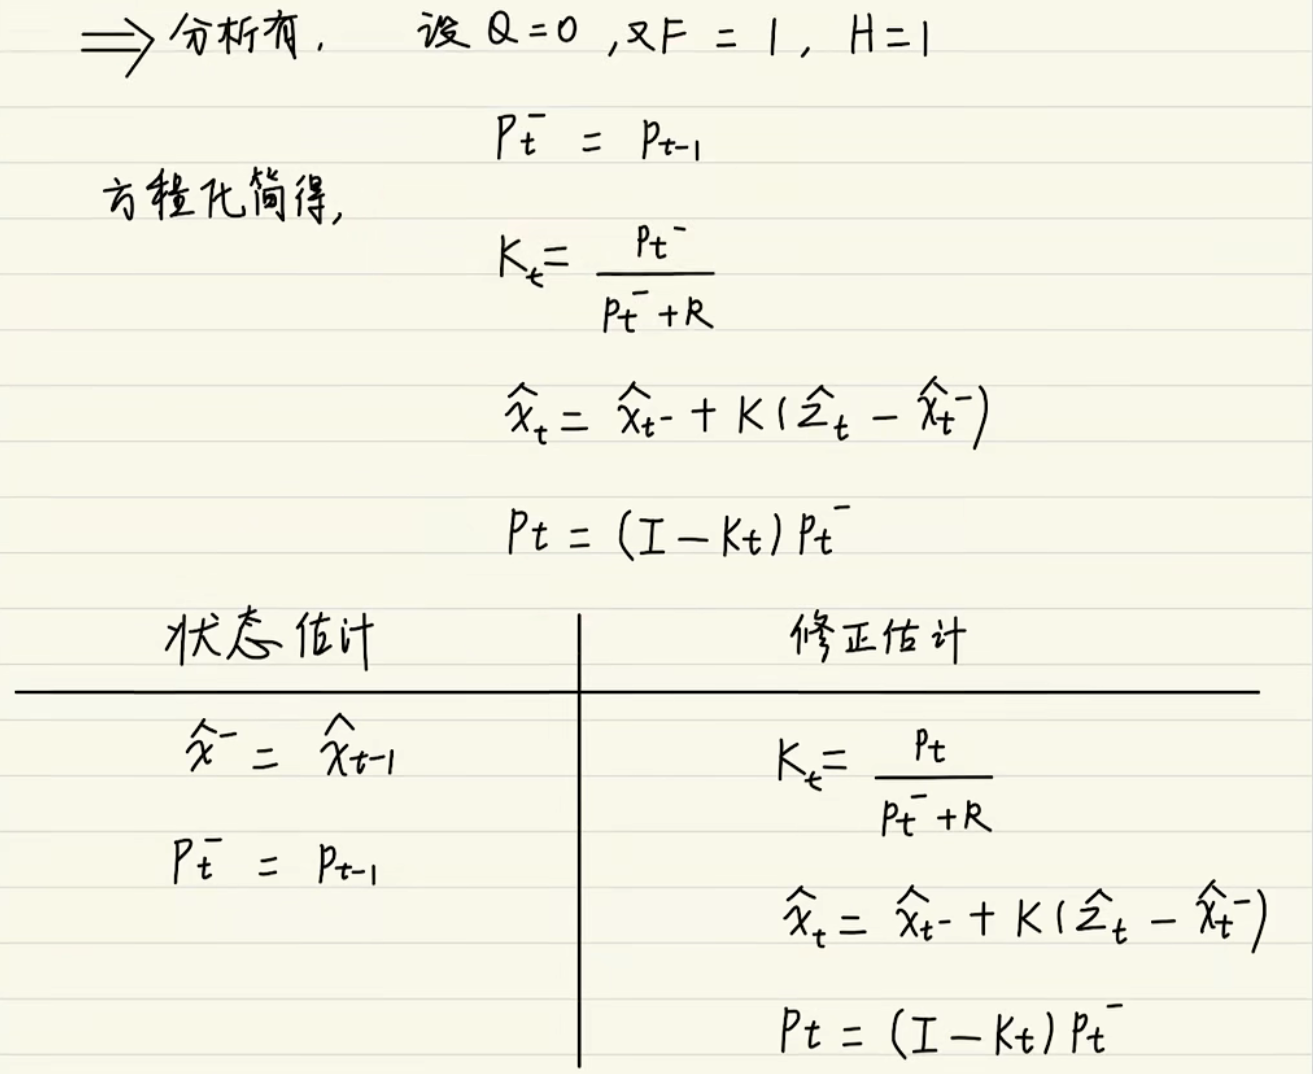 ⟹ 分析有, 设 Q=0 ,又F = 1, H=1
Pt⁻ = Pt-1
方程化简得,
Kt = Pt⁻ / (Pt⁻ + R)
x̂t = x̂t⁻ + K(ẑt − x̂t⁻)
Pt = (I − Kt) Pt⁻
状态估计 修正估计
x̂⁻ = x̂t-1
Pt⁻ = Pt-1
Kt = Pt / (Pt⁻ + R)
x̂t = x̂t⁻ + K(ẑt − x̂t⁻)
Pt = (I − Kt) Pt⁻